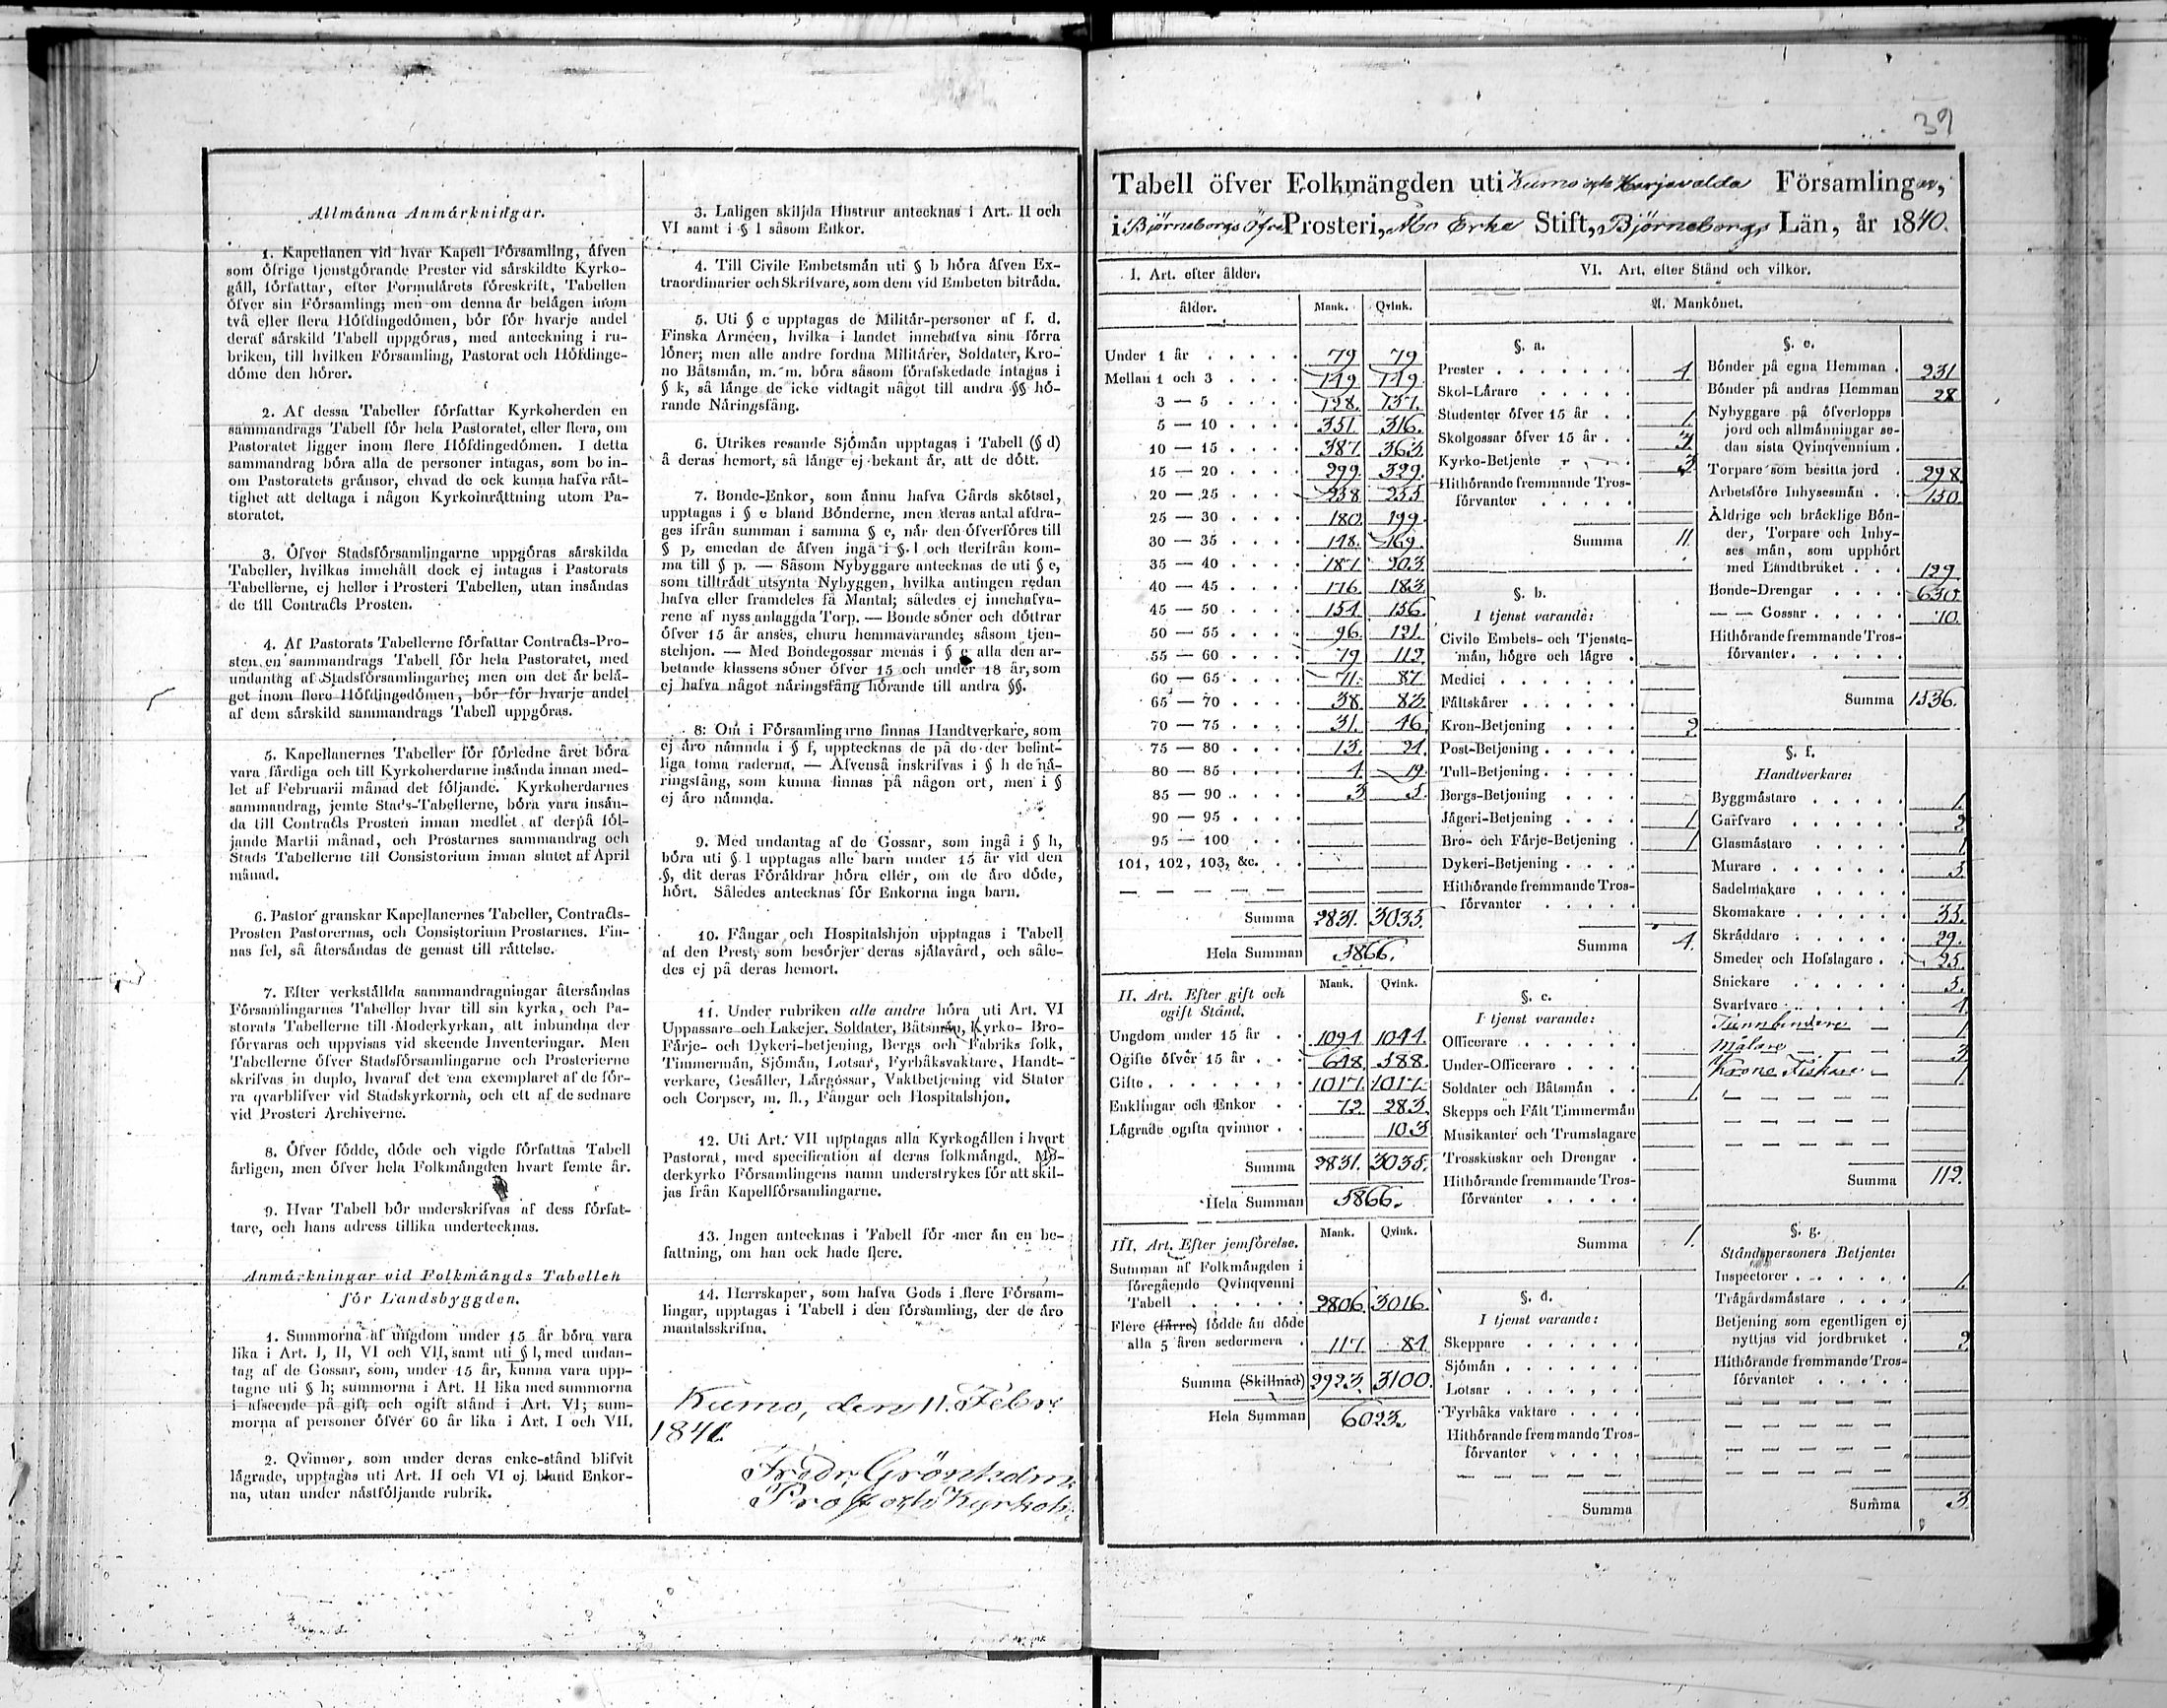 Allmänna Anmärkningar.
1. Kapellanen vid hvar Kapell Församling, äfven
som öfrige tjenstgörande Prester vid särskildte Kyrko-
gäll, författar, efter Formulärets föreskrift, Tabellen
öfver sin Församling; men om denna är belägen inom
två eller flera Höfdingedömen, bör för hvarje andel
deraf särskild Tabell uppgöras, med anteckning i ru-
briken, till hvilken Församling, Pastorat och Höfdinge-
döme den hörer.
2. Af dessa Tabeller författar Kyrkoherden en
sammandrags Tabell för hela Pastoratet, eller flera, om
Pastoratet ligger inom flere Höfdingedömen. I detta
sammandrag böra alla de personer intagas, som bo in-
om Pastoratets gränsor, ehvad de ock kunna hafva rät-
tighet att deltaga i någon Kyrkoinrättning utom Pa-
storatet.
3. Öfver Stadsförsamlingarne uppgöras särskilda
Tabeller, hvilkas innehåll dock ej intages i Pastorats
Tabellerne, ej heller i Prosteri Tabellen, utan insändas
de till Contracts Prosten.
4. Af Pastorats Tabellerne författar Contracts-Pro-
sten en sammandrags Tabell för hela Pastoratet, med
undantag af Stadsförsamlingarne; men om det är belä-
get inom flere Höfdingedömen, bör för hvarje andel
af dem särskild sammandrags Tabell uppgöras.
5. Kapellanernes Tabeller för förledne året böra
vara färdiga och till Kyrkoherdarne insända innan med-
let af Februarii månad det följande. Kyrkoherdarnes
sammandrag, jemte Stads-Tabellerne, böra vara insän-
da till Contracts Prosten innan medlet af derpå föl-
jande Martii månad, och Prostarnes sammandrag och
Stads Tabellerne till Consistorium innan slutet af April
månad.
6. Pastor granskar Kapellanernes Tabeller, Contracts-
Prosten Pastorernas, och Consistorium Prostarnes. Fin-
nas fel, så återsändas de genast till rättelse.
7. Efter verkställda sammandragningar återsändas
Församlingarnes Tabeller hvar till sin kyrka, och Pa-
storats Tabellerne till Moderkyrkan, att inbundna der
förvaras och uppvisas vid skeende Inventeringar. Men
Tabellerne öfver Stadsförsamlingarne och Prosterierne
skrifvas in duplo, hvaraf det ena exemplaret af de för-
ra qvarblifver vid Stadskyrkorna, och ett af de sednare
vid Prosteri Archiverne.
8. Öfver födde, döde och vigde författas Tabell
årligen, men öfver hela Folkmängden hvart femte år.
9. Hvar Tabell bör underskrifvas af dess förfat-
tare, och hans adress tillika undertecknas.
Anmärkningar vid Folkmängds Tabellen
för Landsbyggden.
1. Summorna af ungdom under 15 år böra vara
lika i Art. I, II, VI och VII, samt uti § l, med undan-
tag af de Gossar, som, under 15 år, kunna vara upp-
tagne uti § h; summorna i Art. II lika med summorna
i afseende på gift och ogift stånd i Art. VI; sum-
morna af personer öfver 60 år lika i Art. I och VII.
2. Qvinnor, som under deras enke-stånd blifvit
lägrade, upptagas uti Art. II och VI ej bland Enkor-
na, utan under nästföljande rubrik.
3. Laligen skiljda Hustrur antecknas i Art. II och
VI samt i § l såsom Enkor.
4. Till Civile Embetsmän uti § b höra äfven Ex-
traordinarier och Skrifvare, som dem vid Embeten biträda.
5. Uti § c upptagas de Militär-personer af f. d.
Finska Arméen, hvilka i landet innehafva sina förra
löner; men alle andre fordna Militärer, Soldater, Kro-
no Båtsmän, m. m. böra såsom förafskedade intagas i
§ k, så länge de icke vidtagit något till andra §§ hö-
rande Näringsfång.
6. Utrikes resande Sjömän upptagas i Tabell (§ d)
å deras hemort, så länge ej bekant är, att de dött.
7. Bonde-Enkor, som ännu hafva Gårds skötsel,
upptagas i § e bland Bönderne, men deras antal afdra-
ges ifrån summan i samma § e, när den öfverföres till
§ p, emedan de äfven ingå i § l och derifrån kom-
ma till § p. — Såsom Nybyggare antecknas de uti § e,
som tillträdt utsynta Nybyggen, hvilka antingen redan
hafva eller framdeles få Mantal; således ej innehafva-
rene af nyss anlaggda Torp. — Bonde söner och döttrar
öfver 15 år anses, ehuru hemmavarande; såsom tjen-
stehjon. — Med Bondegossar menas i § e alla den ar-
betande klassens söner öfver 15 och under 18 år, som
ej hafva något näringsfång hörande till andra §§.
8. Om i Församlingarne finnas Handtverkare, som
ej äro nämnda i § f, upptecknas de på de der befint-
liga toma raderna. — Äfvenså inskrifvas i § h de nä-
ringsfång, som kunna finnas på någon ort, men i §
ej äro nämnda.
9. Med undantag af de Gossar, som ingå i § h,
böra uti § l upptagas alle barn under 15 år vid den
§, dit deras Föräldrar höra eller, om de äro döde,
hört. Således antecknas för Enkorna inga barn.
10. Fångar och Hospitalshjon upptagas i Tabell
af den Prest, som besörjer deras själavård, och såle-
des ej på deras hemort.
11. Under rubriken alle andre höra uti Art. VI
Uppassare och Lakejer, Soldater, Båtsmän, Kyrko- Bro-
Färje- och Dykeri-betjening, Bergs och Fabriks folk,
Timmermän, Sjömän, Lotsar, Fyrbåksvaktare, Handt-
verkare, Gesäller, Lärgossar, Vaktbetjening vid Stater
och Corpser, m. fl., Fångar och Hospitalshjon.
12. Uti Art. VII upptagas alla Kyrkogällen i hvart
Pastorat, med specification af deras folkmängd. Mo-
derkyrko Församlingens namn understrykes för att skil-
jas från Kapellförsamlingarne.
13. Ingen antecknas i Tabell för mer än en be-
fattning, om han ock hade flere.
14. Herrskaper, som hafva Gods i flere Försam-
lingar, upptagas i Tabell i den församling, der de äro
mantalsskrifna.
Kumo, den 11. Febr.
1841.
Fredr. Grönholm
Prost och Kyrkoh.
39
Tabell öfver Folkmängden uti Kumo och Harjavalda Församlingar,
i Björneborgs Öfre Prosteri, Åbo Erke Stift, Björneborgs Län, år 1840.
I. Art. efter ålder.
ålder. Mank. Qvink.
Under 1 år 79 79
Mellan 1 och 3 149 149
3 — 5 128 137
5 — 10 351 316
10 — 15 387 363
15 — 20 299 329
20 — 25 238 255
25 — 30 180 199
30 — 35 148 169
35 — 40 187 203
40 — 45 176 183
45 — 50 154 156
50 — 55 96 121
55 — 60 79 112
60 — 65 71 87
65 — 70 38 82
70 — 75 31 46
75 — 80 13 24
80 — 85 4 19
85 — 90 3 5
90 — 95
95 — 100
101, 102, 103, &c.
Summa 2831. 3035.
Hela Summan 5866.
II. Art. Efter gift och ogift Stånd. Mank. Qvink.
Ungdom under 15 år 1094 1044
Ogifte öfver 15 år 648 588
Gifte 1017 1017
Enklingar och Enkor 72 283
Lägrade ogifta qvinnor 103
Summa 2831. 3035.
Hela Summan 5866.
III. Art. Efter jemförelse. Mank. Qvink.
Summan af Folkmängden i
föregående Qvinqvenni
Tabell 2806 3016
Flere (färre) födde än döde
alla 5 åren sedermera 117 84
Summa (Skillnad) 2923. 3100.
Hela Summan 6023.
VI. Art. efter Stånd och vilkor.
A. Mankönet.
§. a.
Prester 4
Skol-Lärare
Studenter öfver 15 år 1
Skolgossar öfver 15 år 3
Kyrko-Betjente 3
Hithörande fremmande Tros-
förvanter
Summa 11.
§. b.
I tjenst varande:
Civile Embets- och Tjenste-
män, högre och lägre
Medici
Fältskärer
Kron-Betjening 2
Post-Betjening
Tull-Betjening
Bergs-Betjening
Jägeri-Betjening 1
Bro- och Färje-Betjening 1
Dykeri-Betjening
Hithörande fremmande Tros-
förvanter
Summa 4.
§. c.
I tjenst varande:
Officerare
Under-Officerare
Soldater och Båtsmän 1
Skepps och Fält Timmermän
Musikanter och Trumslagare
Trosskuskar och Drengar
Hithörande fremmande Tros-
förvanter
Summa 1.
§. d.
I tjenst varande:
Skeppare
Sjömän
Lotsar
Fyrbåks vaktare
Hithörande fremmande Tros-
förvanter
Summa
§. e.
Bönder på egna Hemman 231
Bönder på andras Hemman 28
Nybyggare på öfverlopps
jord och allmänningar se-
dan sista Qvinqvennium
Torpare som besitta jord 298
Arbetsföre Inhysesmän 150
Äldrige och bräcklige Bön-
der, Torpare och Inhy-
ses män, som upphört
med Landtbruket 129
Bonde-Drengar 630
— — Gossar 70
Hithörande fremmande Tros-
förvanter
Summa 1536.
§. f.
Handtverkare:
Byggmästare 1
Garfvare 2
Glasmästare 1
Murare 5
Sadelmakare
Skomakare 35.
Skräddare 29.
Smeder och Hofslagare 25.
Snickare 5.
Svarfvare 4
Tunnbindare 1
Målare 3
Krono Fiskare 1
Summa 112.
§. g.
Ståndspersoners Betjente:
Inspectorer 1.
Trägårdsmästare
Betjening som egentligen ej
nyttjas vid jordbruket 2
Hithörande fremmande Tros-
förvanter
Summa 3